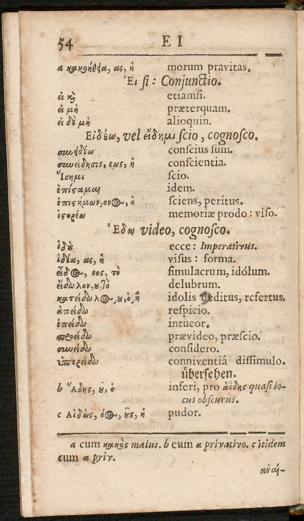 54 E I
a κακοήθεια, ας, ἡ morum pravitas.
Εἰ si: Conjunctio.
εἰ καὶ etiamsi.
εἰ μὴ præterquam.
εἰ δὲ μὴ alioquin.
Εἰδέω, vel εἴδημι scio, cognosco.
συνειδέω conscius sum.
συνείδησις, εως, ἡ conscientia.
Ἴσημι scio.
ἐπίσταμαι idem.
ἐπιστήμων, ονος, ὁ sciens, peritus.
ἱστορέω memoriæ prodo: viso.
Ἔιδω video, cognosco.
ἰδοὺ ecce: Imperativus.
ἰδέα, ας, ἡ visus: forma.
εἶδος, εος, τὸ simulacrum, idólum.
εἴδωλον, ου, τὸ delubrum.
κατείδωλος, ου, ὁ, ἡ idolis deditus, refertus.
ἀπείδω respicio.
ἐπείδω intueor.
προείδω prævideo, præscio.
συνείδω considero.
ὑπερείδω conniventiâ dissimulo.
übersehen.
b Ἅδης, ου, ὁ inferi, pro ἀϊδης quasi lo-
cus obscurus.
c Αἰδὼς, όος, οῦς, ἡ pudor.
a cum κακὸς malus. b cum α privativo. c itidem
cum α priv.